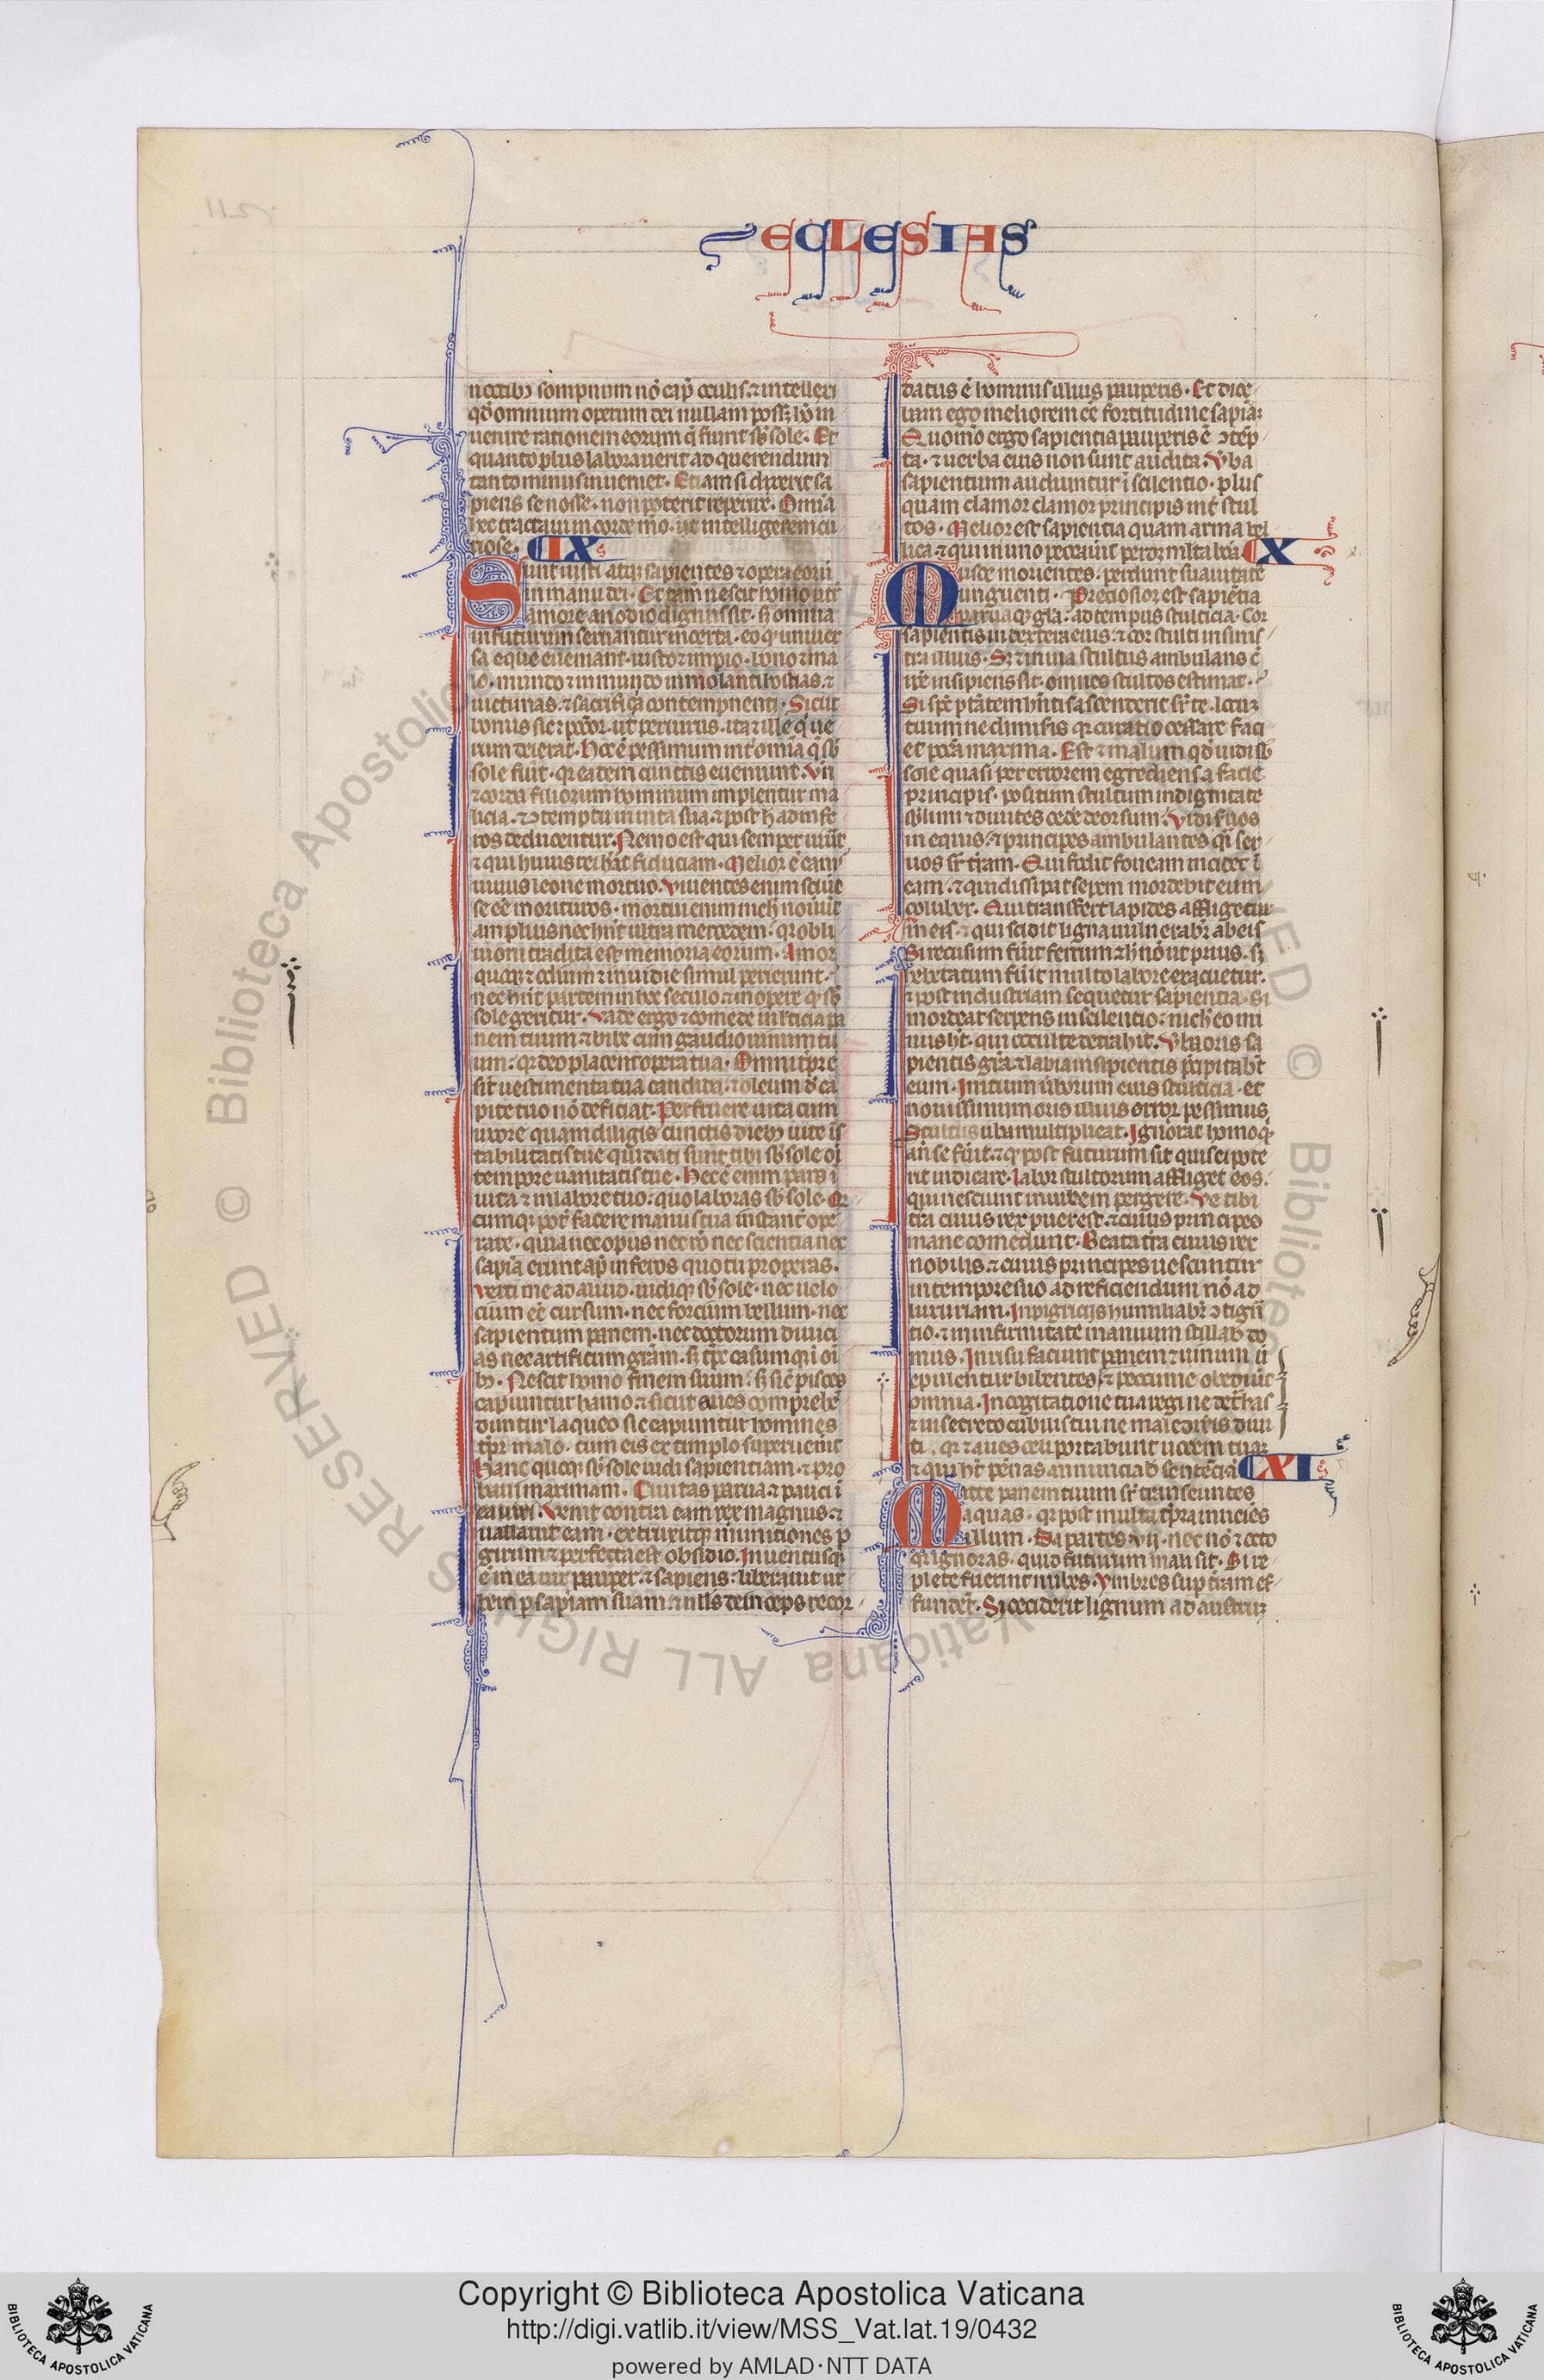 ECLESIAS
noctibꝫ sompnum nō cap̄ oculis. ⁊ intellexi
qd̓ omnium operum dei nullam possꝫ hō in
uenire rationem eorum q̄ fiunt sb̓ sole. Et
quanto plus laborauerit ad querendum
tanto minus inueniet. Etiam si dixerit sa
piens se nosse. non poterit reperire. Omīa
hec tractaui in corde meo. ut intelligerem cu
riose. IX
Sunt iusti atqꝫ sapientes ⁊ opera eorū
in manu dei. Et tam̄ nescit homo utꝝ
amore an odio dignus sit. sꝫ omnia
in futurum seruantur incerta. eo qꝫ uniuer
sa eque eueniant. iusto ⁊ impio. bono ⁊ ma
lo. mundo ⁊ inmundo inmolanti hostias. ⁊
uictimas. ⁊ sacrificia contempnenti. Sicut
bonus sic ⁊ pcc̄or. ut periurus. ita ⁊ ille q̓ ue
rum deierat. Hoc ē pessimum int̓ omīa q̄ sb̓
sole fiūt. qꝛ eadem cunctis eueniunt. Vn̄
⁊ corda filiorum hominum implentur ma
licia. ⁊ ꝯtemptu in uita sua. ⁊ post h̓ ad infe
ros deducentur. Nemo est qui semper uiuat
⁊ qui huius rei h̓at fiduciam. Melior ē canis
uiuus leone mortuo. Viuentes enim sciūt
se eē morituros. mortui enim nich̓ nouerūt
amplius nec hn̄t ultra mercedem. qꝛ obli
uioni tradita est memoria eorum. Amor
quoqꝫ ⁊ odium ⁊ inuidie simul perierunt.
nec hn̄t partem in hoc seculo ⁊ in opere qd̓ sb̓
sole geritur. Vade ergo ⁊ comede in leticia pa
nem tuum ⁊ bibe cum gaudio uinum tu
um. qꝛ deo placent opera tua. Omni tp̄re
sīt uestimenta tua candida. ⁊ oleum d̓ ca
pite tuo nō deficiat. Perfruere uita cum
uxore quam diligis cunctis diebꝫ uite īs
tabilitatis tue qui dati sunt tibi sb̓ sole oī
tempore uanitatis tue. Hec ē enim pars ī
uita ⁊ in labore tuo. quo laboras sb̓ sole. Qd̓
cumqꝫ pot̓ facere manus tua instant̓ ope
rare. quia nec opus nec rō nec scientia nec
sapīa erunt ap̓ inferos quo tu properas.
Verti me ad aliud. uidiqꝫ sb̓ sole. nec uelo
cium eē cursum. nec fortium bellum. nec
sapientum panem. nec doctorum diuici
as nec artificum grām. sꝫ tp̄s casumqꝫ ī oī
bꝫ. Nescit homo finem suum. sꝫ sic̄ pisces
capiuntur hamo. ⁊ sicut aues comprehē
duntur laqueo sic capiuntur homines
tp̄r malo. cum eis extimplo superuenit
Hanc quoqꝫ sb̓ sole uidi sapientiam. ⁊ pro
baui maximam. Ciuitas parua ⁊ pauci ī
ea uiri. Venit contra eam rex magnus. ⁊
uallauit eam. extruxitqꝫ munitiones p̱
girum ⁊ perfecta est obsidio. Inuentusqꝫ
ē in ea uir pauper. ⁊ sapiens. liberauit ur
bem p̱ sapīam suam. ⁊ nll̓s deinceps recor
datus ē hominis illius pauperis. Et dice
bam ego meliorem eē fortitudine sapīaꝫ
Quomō ergo sapientia pauperis ē ꝯtēp
ta. ⁊ uerba eius non sunt audita. Vb̓a
sapientum audiuntur ī silentio. plus
quam clamor clamor principis int̓ stul
tos. Melior est sapientia quam arma bel
lica. ⁊ qui in uno peccauit̓ perdꝫ mlt̓a bōa X
Musce morientes. perdunt suauitatē
unguenti. Preciosior est sapientia
parua qꝫ gl̓a. ad tempus stulticia. Cor
sapientis in dextera eius. ⁊ cor stulti in sinis
tra illius. Sꝫ ⁊ in uia stultus ambulans cū
ip̄e insipiens sit. omnes stultos estimat.
Si sp̄c ptātem hn̄tis ascenderit sr̄ te. locuꝫ
tuum ne dimiseris qꝛ curatio cessare faci
et pcc̄a maxima. Est ⁊ malum qd̓ uidi sb̓
sole quasi per errorem egrediens a facie
principis. positum stultum in dignitate
sb̓limi ⁊ diuites sedē deorsum. Vidi s̓uos
in equis. ⁊ principes ambulantes qi̓ ser
uos sr̄ t̓ram. Qui fodit foueam incidet ī
eam. ⁊ qui dissipat sepem mordebit eum
coluber. Qui transfert lapides affligetur
in eis. ⁊ qui scindit ligna uulnerabr̄ ab eis
Si retusum fūit ferrum ⁊ h̓ nō ut prius. sꝫ
hebetatum fūit multo labore exacuetur.
⁊ post industriam sequetur sapientia. Si
mordeat serpens in silentio. nich̓ eo mi
nus h̓t. qui occulte detrahit. Vb̓a oris sa
pientis gr̄a. ⁊ labia insipientis p̄cipitabn̄t
eum. Initium ūborum eius stulticia. et
nouissimum oris illius error pessimus
Stultus ūba multiplicat. Ignorat homo qd̓
an̄ se fūit. ⁊ qd̓ post futurum sit quis ei pote
rit indicare. Labor stultorum affliget eos.
qui nesciunt in urbem pergere. Ve tibi
t̓ra cuius rex puer est. ⁊ cuius principes
mane comedunt. Beata t̓ra cuius rex
nobilis. ⁊ cuius principes uescuntur
in tempore suo ad reficiendum nō ad
luxuriam. In pigriciis humiliabr̄ ꝯtigna
tio. ⁊ in infirmitate manuum stillab̓ do
mus. In risu faciunt panem ⁊ uinum ū
epulentur bibentes. ⁊ peccunie obediūt
omnia. In cogitatione tua regi ne detrahas
⁊ in secreto cubiculi tui ne maledixeris diui
ti. qꝛ ⁊ aues celi portabunt uocem tuaꝫ
⁊ qui h̓t pēnas annunciab̓ sententiā XI
Mitte panem tuum sr̄ transeuntes
aquas. qꝛ post multa tp̄ra inuēies
illum. Da partes vii. nec nō ⁊ octo
qꝛ ignoras. quid futurum mali sit. Si re
plete fuerint nubes. ymbres sup̄ t̓ram ef
fundēt. Si ceciderit lignum ad austruꝫ
Copyright © Biblioteca Apostolica Vaticana
http://digi.vatlib.it/view/MSS_Vat.lat.19/0432
powered by AMLAD·NTT DATA
BIBLIOTECA APOSTOLICA VATICANA
BIBLIOTECA APOSTOLICA VATICANA
Biblioteca Apostolica Vaticana ALL RIGHTS RESERVED ©